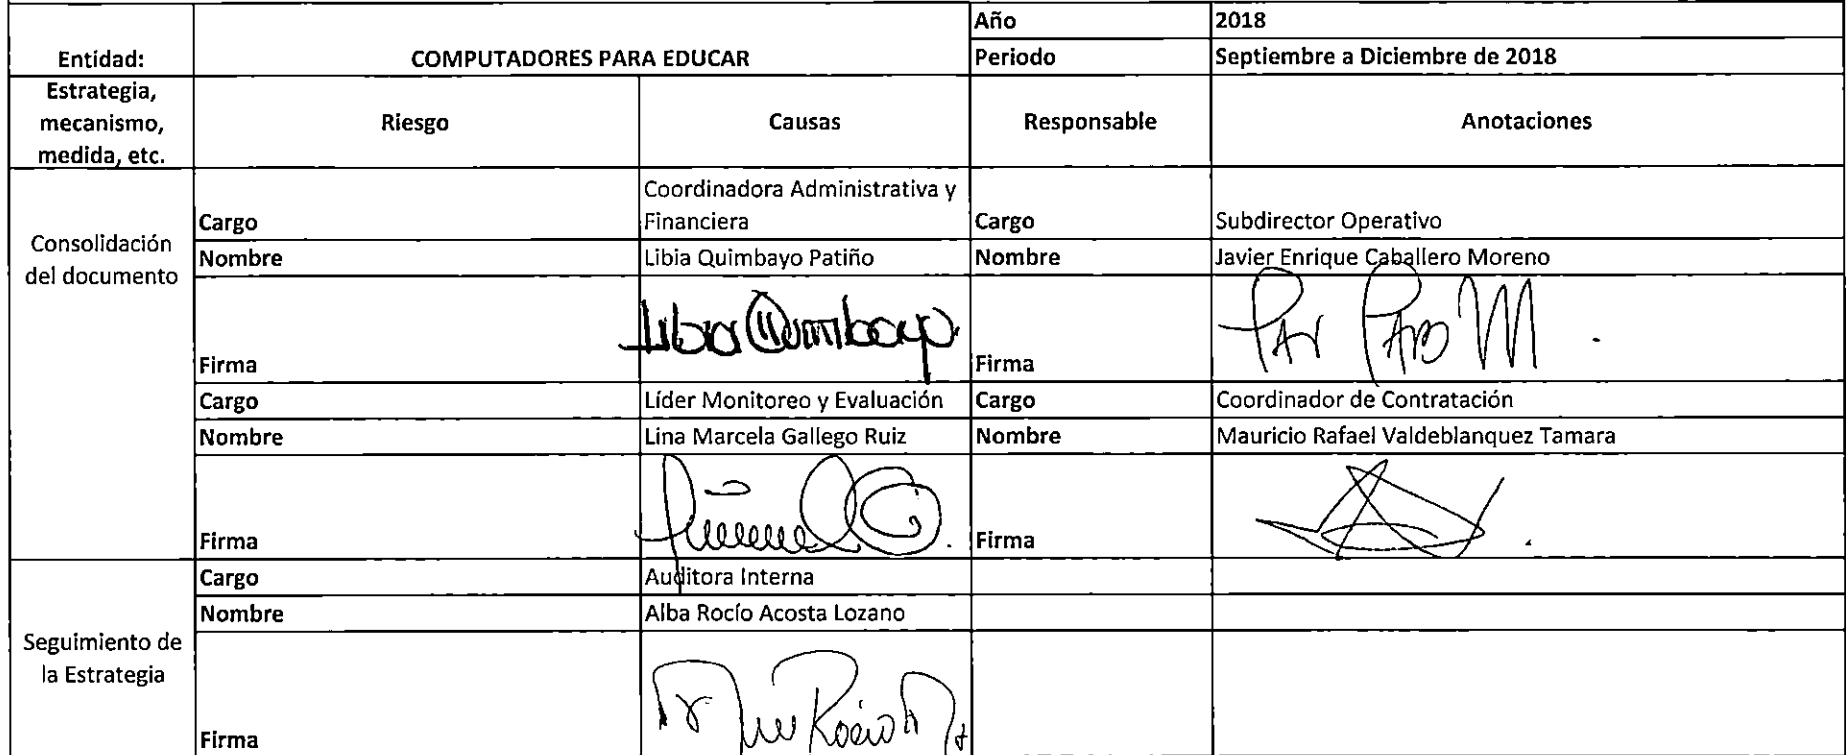 Año 2018
Entidad: COMPUTADORES PARA EDUCAR Periodo Septiembre a Diciembre de 2018
Estrategia,
mecanismo,
medida, etc.
Riesgo Causas Responsable Anotaciones
Consolidación
del documento
Coordinadora Administrativa y
Cargo Financiera Cargo Subdirector Operativo
Nombre Libia Quimbayo Patiño Nombre Javier Enrique Caballero Moreno
Libia Quimbayo
Firma Firma
Cargo Líder Monitoreo y Evaluación Cargo Coordinador de Contratación
Nombre Lina Marcela Gallego Ruiz Nombre Mauricio Rafael Valdeblanquez Tamara
Firma Firma
Seguimiento de
la Estrategia
Cargo Auditora Interna
Nombre Alba Rocío Acosta Lozano
Rocío
Firma